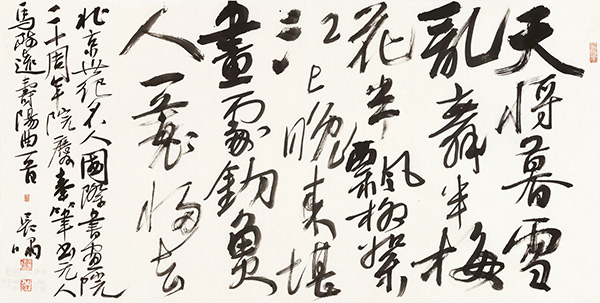 天將暮雪
亂舞半梅
花半飄柳絮
江上晚來堪
畫處釣魚
人一蓑歸去
北京世紀名人國際書畫院
二十周年院慶索筆書元人
馬致遠壽陽曲一首 吳